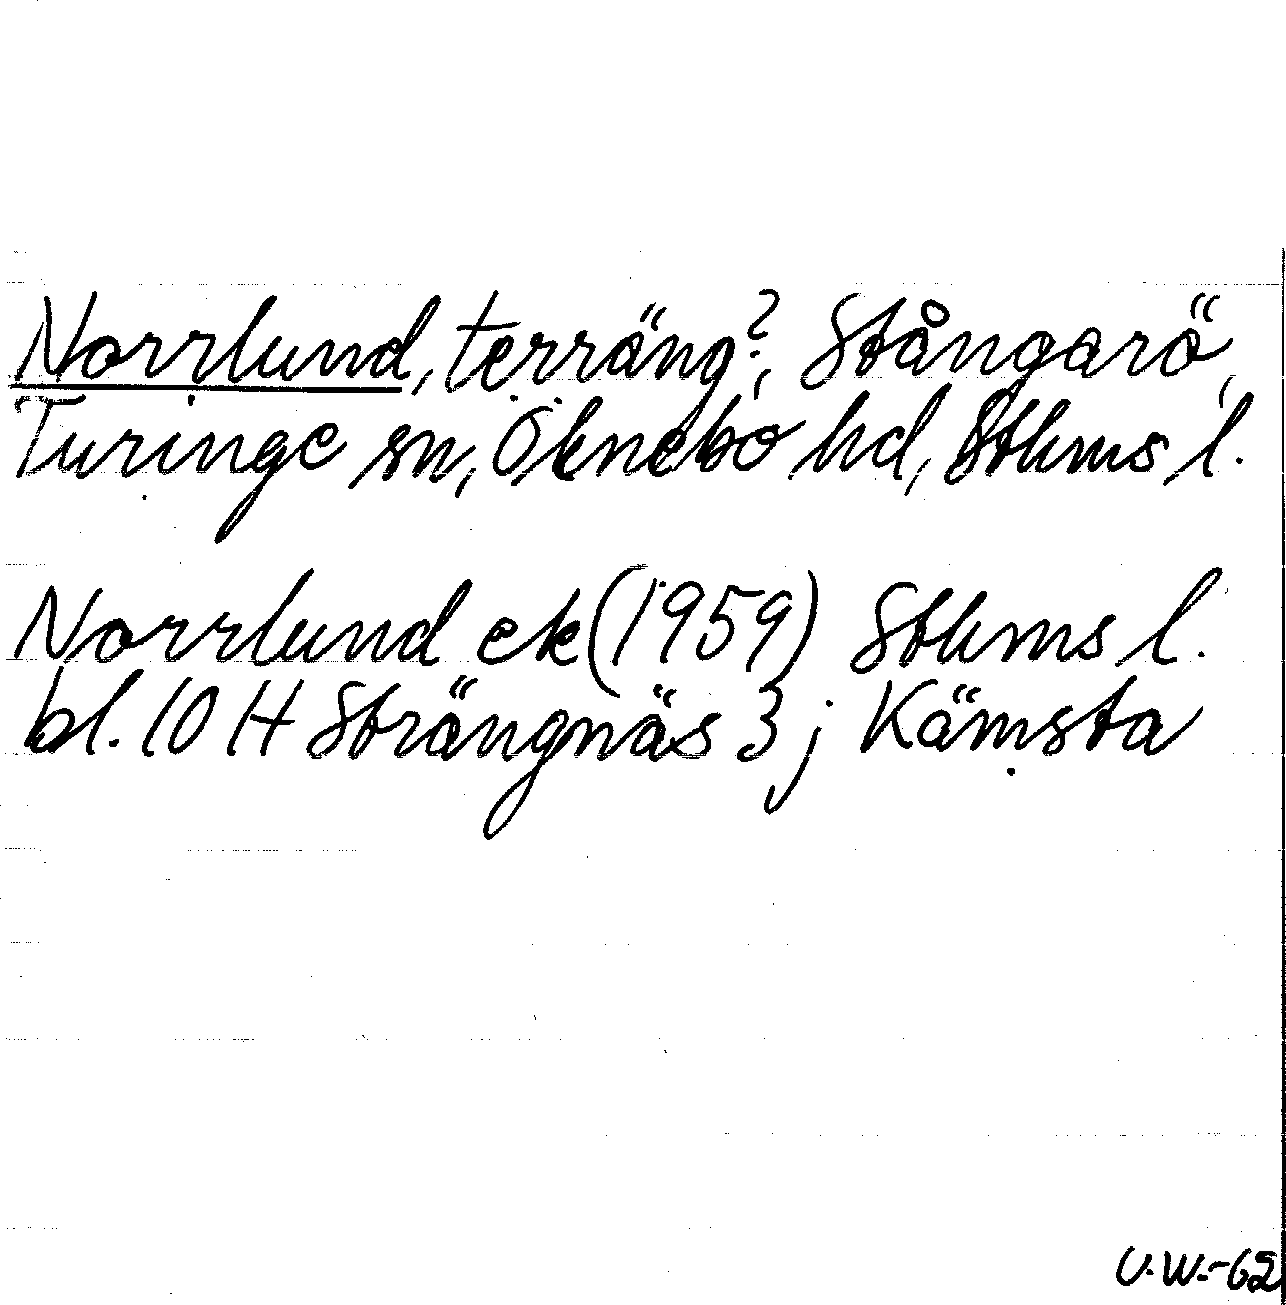 Norrlund, terräng?, Stångarö,
Turinge sn, Öknebo hd, Sthms l.
Norrlund ek (1959) Sthms l.
bl. 10 H Strängnäs 3 j Kämsta
U.W.-62